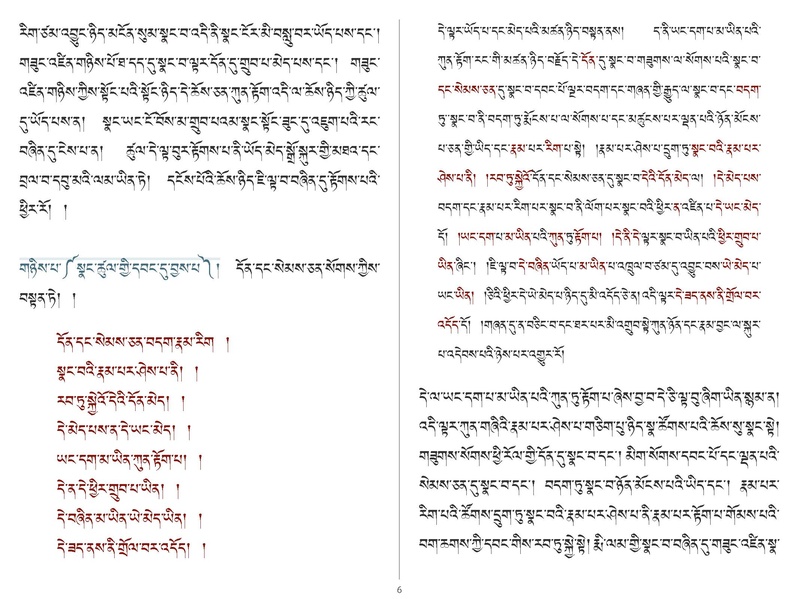 རིག་ཙམ་འབྱུང་ཉིད་མངོན་སུམ་སྣང་བ་འདི་ནི་སྣང་ངོར་མི་བསླུ་བར་ཡོད་པས་དང་།
གཟུང་འཛིན་གཉིས་པོ་ཐ་དད་དུ་སྣང་བ་ལྟར་དོན་དུ་གྲུབ་པ་མེད་པས་དང་། གཟུང་
འཛིན་གཉིས་ཀྱིས་སྟོང་པའི་སྟོང་ཉིད་དེ་ཆོས་ཅན་ཀུན་རྟོག་འདི་ལ་ཆོས་ཉིད་ཀྱི་ཚུལ་
དུ་ཡོད་པས་ན། སྣང་ཡང་ངོ་བོས་མ་གྲུབ་པའམ་སྣང་སྟོང་ཟུང་དུ་འཇུག་པའི་རང་
བཞིན་དུ་ངེས་པ་ན། ཚུལ་དེ་ལྟ་བུར་རྟོགས་པ་ནི་ཡོད་མེད་སྒྲོ་སྐུར་གྱི་མཐའ་དང་
བྲལ་བ་དབུ་མའི་ལམ་ཡིན་ཏེ། དངོས་པོའི་ཆོས་ཉིད་ཇི་ལྟ་བ་བཞིན་དུ་རྟོགས་པའི་
ཕྱིར་རོ། །
གཉིས་པ་༼སྣང་ཚུལ་གྱི་དབང་དུ་བྱས་པ་༽། དོན་དང་སེམས་ཅན་སོགས་ཀྱིས་
བསྟན་ཏེ། །
དོན་དང་སེམས་ཅན་བདག་རྣམ་རིག །
སྣང་བའི་རྣམ་པར་ཤེས་པ་ནི། །
རབ་ཏུ་སྐྱེའོ་དེའི་དོན་མེད། །
དེ་མེད་པས་ན་དེ་ཡང་མེད། །
ཡང་དག་མ་ཡིན་ཀུན་རྟོག་པ། །
དེ་ན་དེ་ཕྱིར་གྲུབ་པ་ཡིན། །
དེ་བཞིན་མ་ཡིན་ཡེ་མེད་ཡིན། །
དེ་ཟད་ནས་ནི་གྲོལ་བར་འདོད། །
དེ་ལྟར་ཡོད་པ་དང་མེད་པའི་མཚན་ཉིད་བསྟན་ནས། ད་ནི་ཡང་དག་པ་མ་ཡིན་པའི་
ཀུན་རྟོག་རང་གི་མཚན་ཉིད་བརྗོད་དེ་དོན་དུ་སྣང་བ་གཟུགས་ལ་སོགས་པའི་སྣང་བ་
དང་སེམས་ཅན་དུ་སྣང་བ་དབང་པོ་ལྔར་བདག་དང་གཞན་གྱི་རྒྱུད་ལ་སྣང་བ་དང་བདག་
ཏུ་སྣང་བ་ནི་བདག་ཏུ་རྨོངས་པ་ལ་སོགས་པ་དང་མཚུངས་པར་ལྡན་པའི་ཉོན་མོངས་
པ་ཅན་གྱི་ཡིད་དང་རྣམ་པར་རིག་པ་སྟེ། །རྣམ་པར་ཤེས་པ་དྲུག་ཏུ་སྣང་བའི་རྣམ་པར་
ཤེས་པ་ནི། །རབ་ཏུ་སྐྱེའོ་དོན་དང་སེམས་ཅན་དུ་སྣང་བ་དེའི་དོན་མེད་ལ། །དེ་མེད་པས་
བདག་དང་རྣམ་པར་རིག་པར་སྣང་བ་ནི་ལོག་པར་སྣང་བའི་ཕྱིར་ན་འཛིན་པ་དེ་ཡང་མེད་
དོ། །ཡང་དག་པ་མ་ཡིན་པའི་ཀུན་ཏུ་རྟོག་པ། །དེ་ནི་དེ་ལྟར་སྣང་བ་ཡིན་པའི་ཕྱིར་གྲུབ་པ་
ཡིན་ཞིང་། །ཇི་ལྟ་བ་དེ་བཞིན་ཡོད་པ་མ་ཡིན་པ་འཁྲུལ་བ་ཙམ་དུ་འབྱུང་བས་ཡེ་མེད་པ་
ཡང་ཡིན། །ཅིའི་ཕྱིར་དེ་ཡེ་མེད་པ་ཉིད་དུ་མི་འདོད་ཅེ་ན། འདི་ལྟར་དེ་ཟད་ནས་ནི་གྲོལ་བར་
འདོད་དོ། །གཞན་དུ་ན་བཅིང་བ་དང་ཐར་པར་མི་འགྲུབ་སྟེ་ཀུན་ཉོན་དང་རྣམ་བྱང་ལ་སྐུར་
པ་འདེབས་པའི་ཉེས་པར་འགྱུར་རོ།
དེ་ལ་ཡང་དག་པ་མ་ཡིན་པའི་ཀུན་ཏུ་རྟོག་པ་ཞེས་བྱ་བ་དེ་ཅི་ལྟ་བུ་ཞིག་ཡིན་སྙམ་ན།
འདི་ལྟར་ཀུན་གཞིའི་རྣམ་པར་ཤེས་པ་གཅིག་པུ་ཉིད་སྣ་ཚོགས་པའི་ཆོས་སུ་སྣང་སྟེ།
གཟུགས་སོགས་ཕྱི་རོལ་གྱི་དོན་དུ་སྣང་བ་དང་། མིག་སོགས་དབང་པོ་དང་ལྡན་པའི་
སེམས་ཅན་དུ་སྣང་བ་དང་། བདག་ཏུ་སྣང་བ་ཉོན་མོངས་པའི་ཡིད་དང་། རྣམ་པར་
རིག་པའི་ཚོགས་དྲུག་ཏུ་སྣང་བའི་རྣམ་པར་ཤེས་པ་ནི་རྣམ་པར་རྟོག་པ་གོམས་པའི་
བག་ཆགས་ཀྱི་དབང་གིས་རབ་ཏུ་སྐྱེ་སྟེ། རྨི་ལམ་གྱི་སྣང་བ་བཞིན་དུ་གཟུང་འཛིན་སྣ་
6